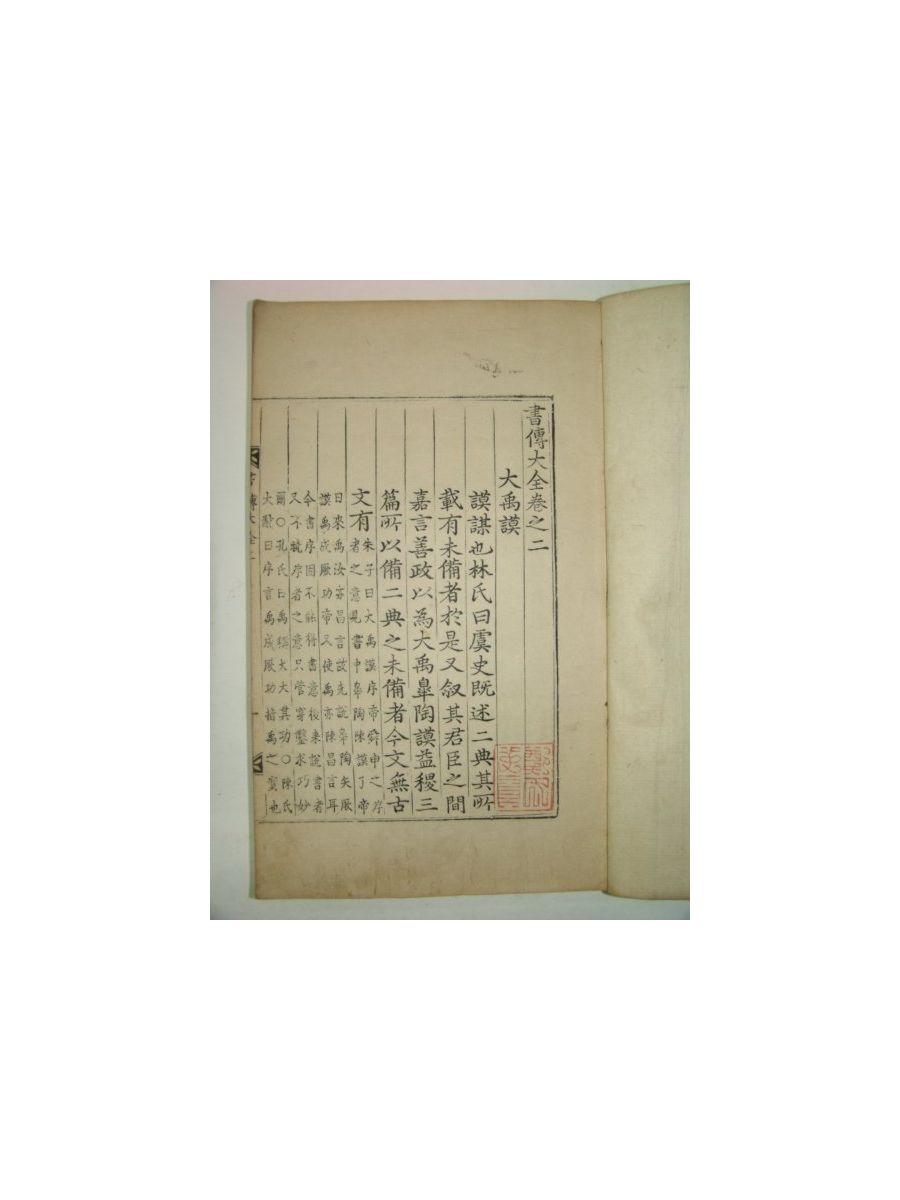 書傳大全卷之二
大禹謨
謨謀也林氏曰虞史既述二典其所
載有未備者於是又叙其君臣之間
嘉言善政以為大禹皐陶謨益稷三
篇所以備二典之未備者今文無古
文有
朱子曰大禹謨序帝舜申之序
者之意見書中皐陶陳謨了帝
曰來禹汝亦昌言故先說皐陶矢厥
謨禹成厥功帝又使禹亦陳昌言耳
今書序固不能得書意後来說書者
又不曉序者之意只管穿鑿求巧妙
爾○孔氏曰禹稱大大其功○陳氏
大猷曰序言禹成厥功指禹之實也
書傳大全二
一